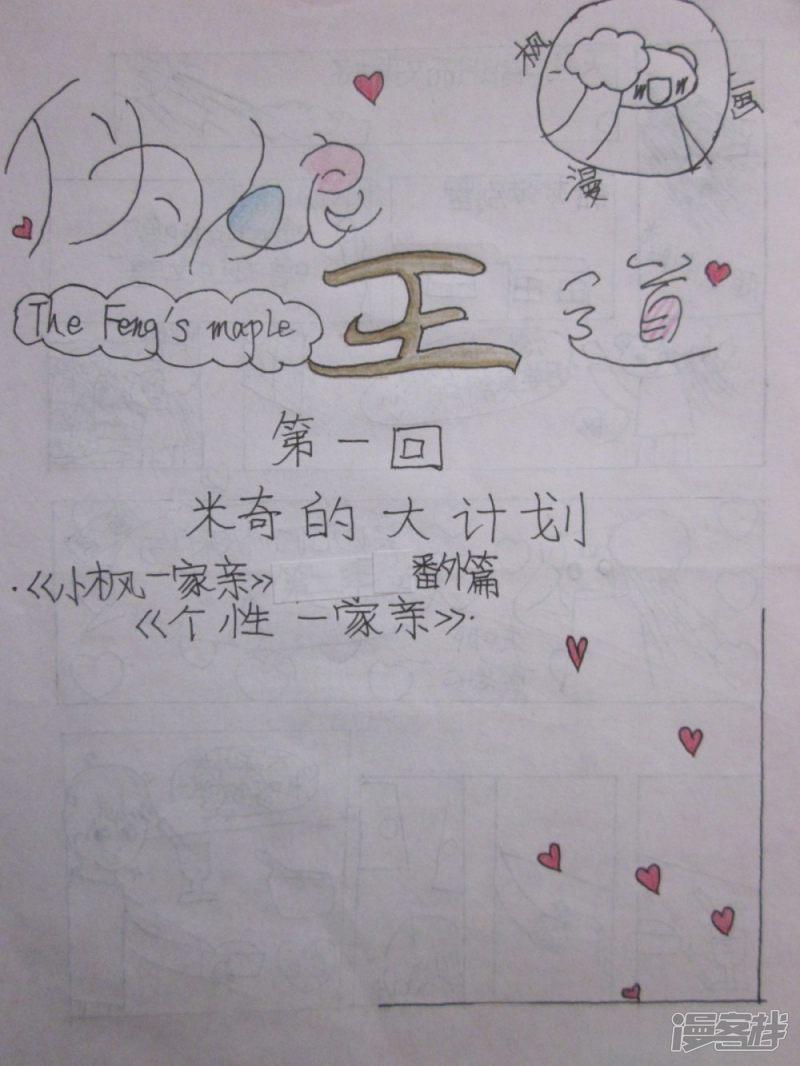 枫
漫
画
伪娘
王道
The Feng's maple
第一回
米奇的大计划
·《小枫一家亲》 番外篇
《个性一家亲》·
漫客栈